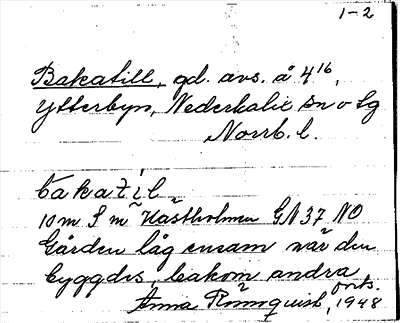 1-2
Bakatill, gd. avs. å 4¹⁶,
Ytterbyn, Nederkalix sn o Sg
Norrb. l.
bakatil
10 m S m Hästholmen GN 37 NO
Gården låg ensam när den
byggdes, bakom andra
Anna Rönnquist, 1948